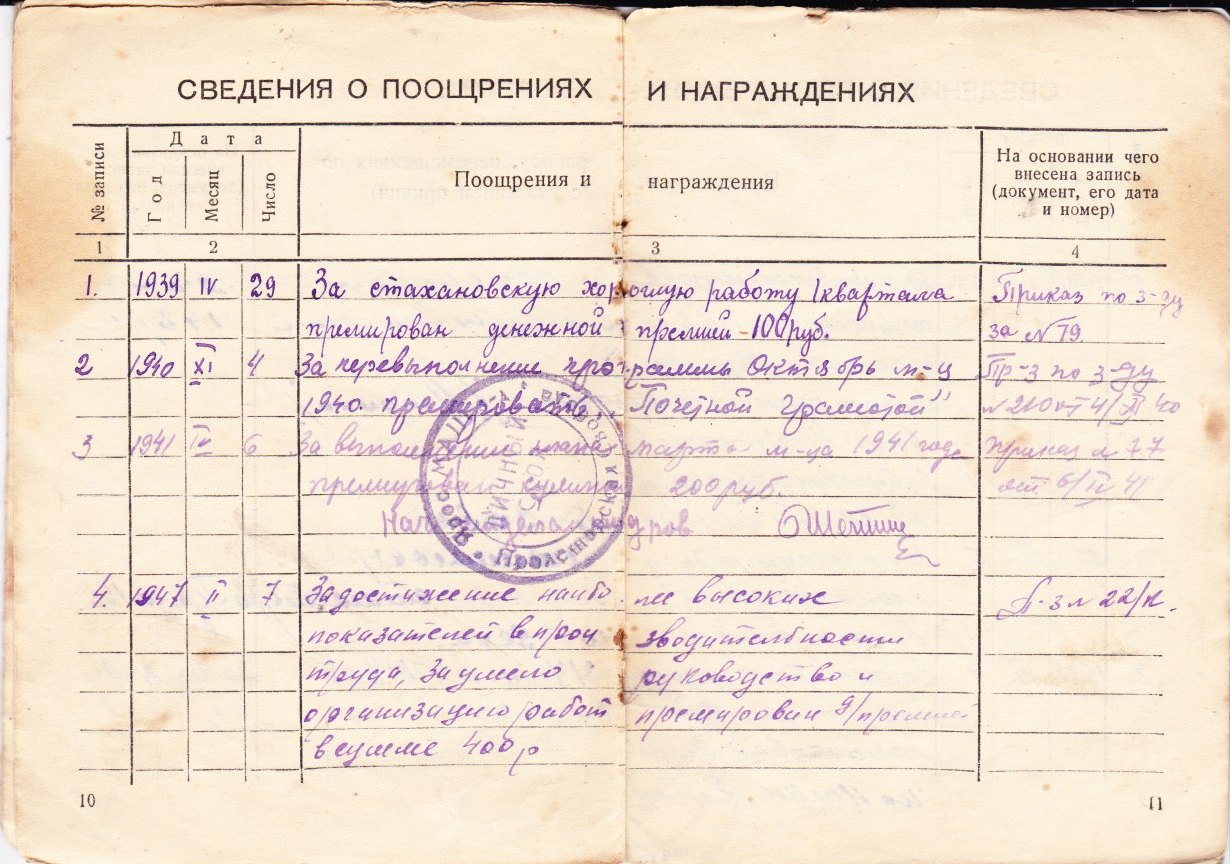 СВЕДЕНИЯ О ПООЩРЕНИЯХ И НАГРАЖДЕНИЯХ
№ записи
Дата
Год
Месяц
Число
Поощрения и награждения
На основании чего
внесена запись
(документ, его дата
и номер)
1 2 3 4
1. 1939 IV 29 За стахановскую хорошую работу 1 квартала Приказ по з-ду
премирован денежной премией 100 руб. за № 79.
2 1940 XI 4 За перевыполнение программы Октябрь м-ц Пр-з по з-ду
1940. премирован Почетной грамотой" № 210 от 4/XI 40
3 1941 IV 6 За выполнение плана марта м-ца 1941 года приказ № 77
премирован 200 руб. от 6/IV 41
Нач отдела кадров
Пролетарская
4. 1947 II 7 За достижение наиболее высоких П-з № 22/к.
показателей в производительности
труда, за умело руководство и
организацию работ премирован д/премией
в сумме 400 р
10
11